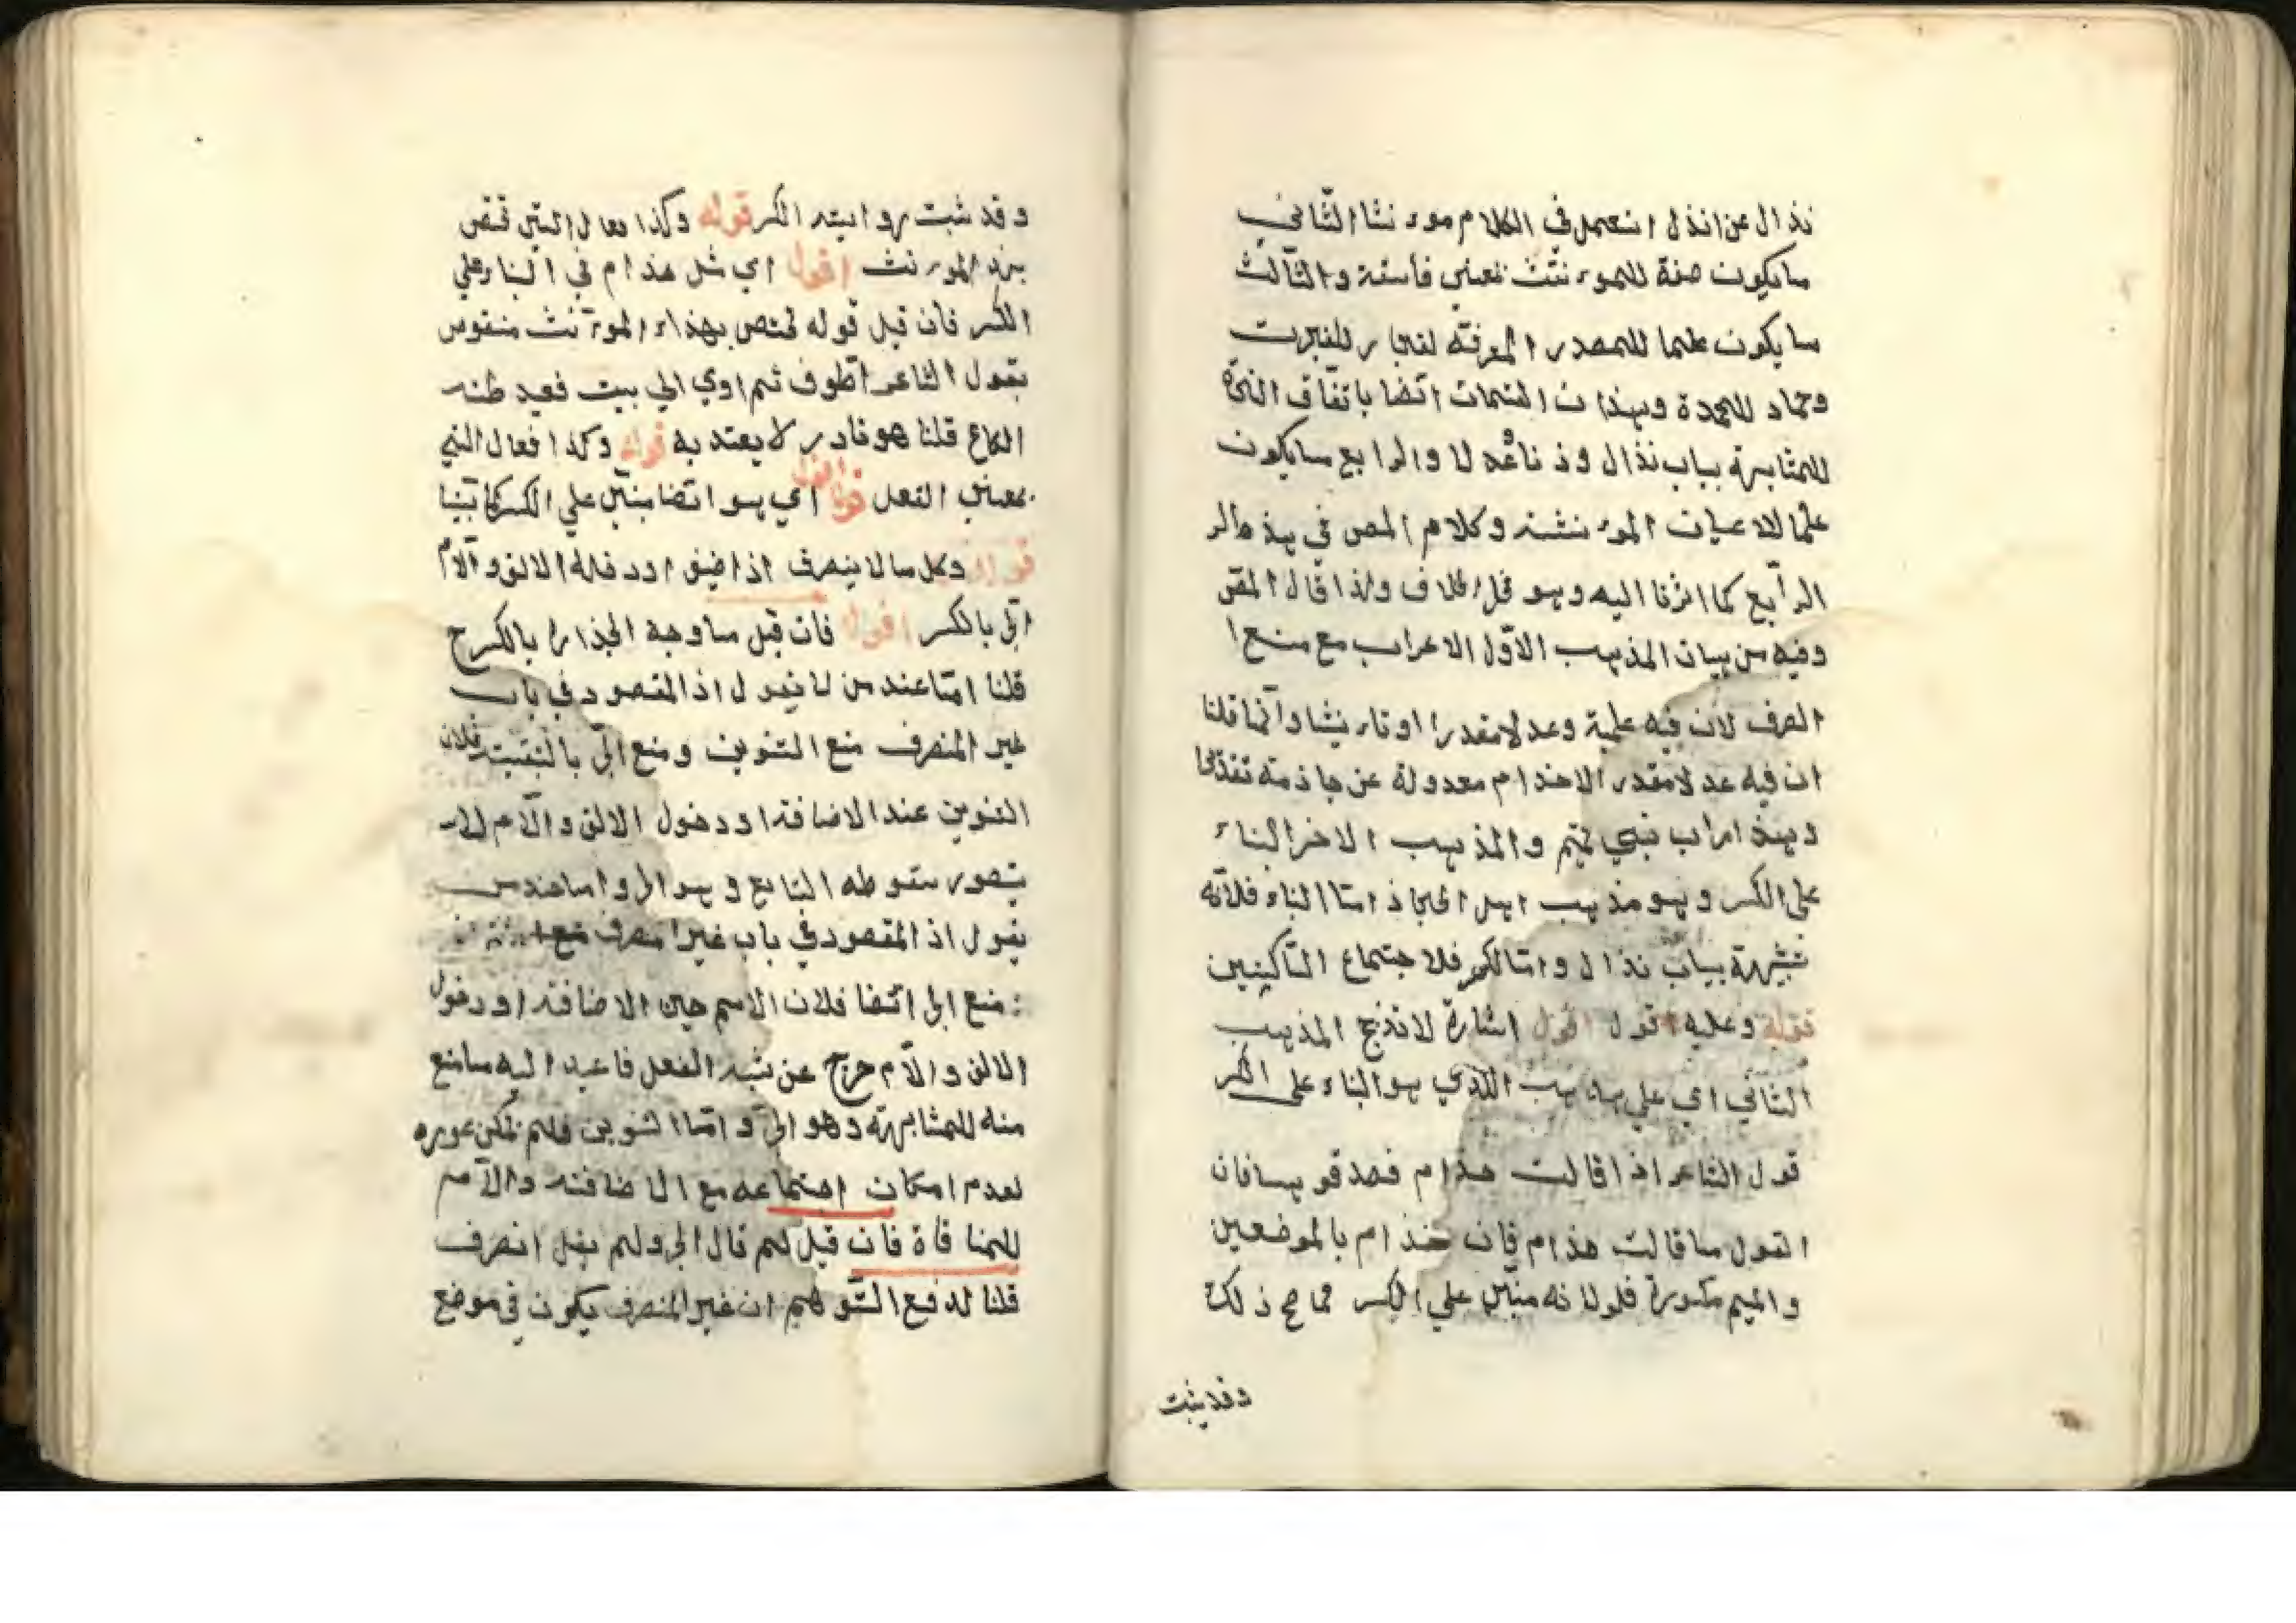 نذال عن انذل استعمل في الكلام موءنثا الثاني
ما يكون صفة للموءنث نعني فاسقة والثالث
ما يكون علما للمصدر المعرفة لفجار للفجرت
وحماد للمحمدة وبهذان القسمان ايضا باتفاق النحاة
للمشابهة بباب نذال والرابع ما يكون
علما للاعيان الموءنثة وكلام المص في هذا
الرابع كما اشرنا اليه وهو محل خلاف ولذا قال المص
وفيه من بيان المذهب الاول الاعراب مع منع ا
الصرف لان فيه علمية وعدلا مقدرا او تاءنيثا وانما قلنا
ان فيه عدلا مقدرا لان حذام معدولة عن حاذمة تقديرا
وهذا مراب بني تميم والمذهب الاخر البناء
على الكسر وهو مذهب اهل الحجاز اما البناء فلانه
شبيهة بباب نذال واما الكسر فلاجتماع الساكنين
قوله وعليه قول اقول اشارة المذهب
الثاني اي على مذهب الذي هو البناء على الكسر
قول الشاعر اذا قالت حذام فصدقوها فان
القول ما قالت حذام فان حذام بالموضعين
والميم مكسورة فلو لا نه مبني على الكسر لما صح ذلك
وقد ثبت
وقد ثبت روايته الكسر قوله وكذا فعال التي تختص
بنداء الموءنث اقول اي مثل حذام في البناء على
الكسر فان قيل قوله تختص بهذا الموءنث منقوض
بقول الشاعر اطوف ثم اوي الى بيت قعيدظنه
لكاع قلنا هو نادر لا يعتد به قوله وكذا فعال التي
بمعنى الفعل اقول اي هو ايضا مبني على الكسر
قوله وكل ما لا ينصرف اذا اضيف او دخله الالف والام
انجر بالكسر اقول فان قيل ما وجه انجراره بالكسر ح
قلنا اما عند من لا يقول اذ المقصود في باب
غير المنصرف منع التنوين ومنع الجر بالتبعية فلان
التنوين عند الاضافة او دخول الالف والام
يتصور سقوطه التابع وهو الجر واما عند من
يقول اذ المقصود في باب غير منصرف منع
منع الجر ايضا فلان الاسم حين الاضافة او دخول
الالف والام خرج عن شبه الفعل فاعيد اليه ما منع
منه للمشابهة وهو الجر واما التنوين فلم يمكن عوده
لعدم امكان اجتماعه مع الاضافة والام
للمنافاة فان قيل لم قال انجر ولم يقل انصرف
قلنا لدفع التوهم ان غير المنصرف يكون في موضع